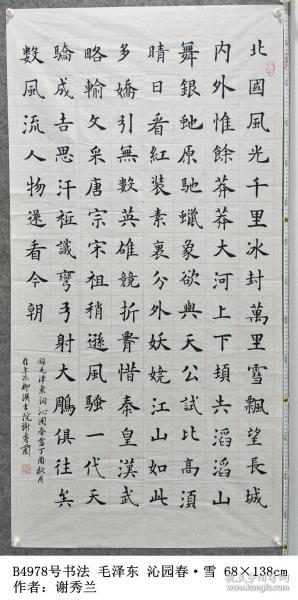 北國風光千里冰封萬里雪飄望長城
内外惟餘莽莽大河上下頓失滔滔山
舞銀虵原馳蠟象欲與天公試比高須
晴日看紅裝素裹分外妖嬈江山如此
多嬌引無數英雄競折腰惜秦皇漢武
略輸文采唐宗宋祖稍遜風騷一代天
驕成吉思汗祗識彎弓射大鵰俱往矣
數風流人物還看今朝
錄毛澤東詞沁園春雪丁酉秋月
書院謝秀蘭
B4978号书法 毛泽东 沁园春·雪 68×138cm
作者：谢秀兰